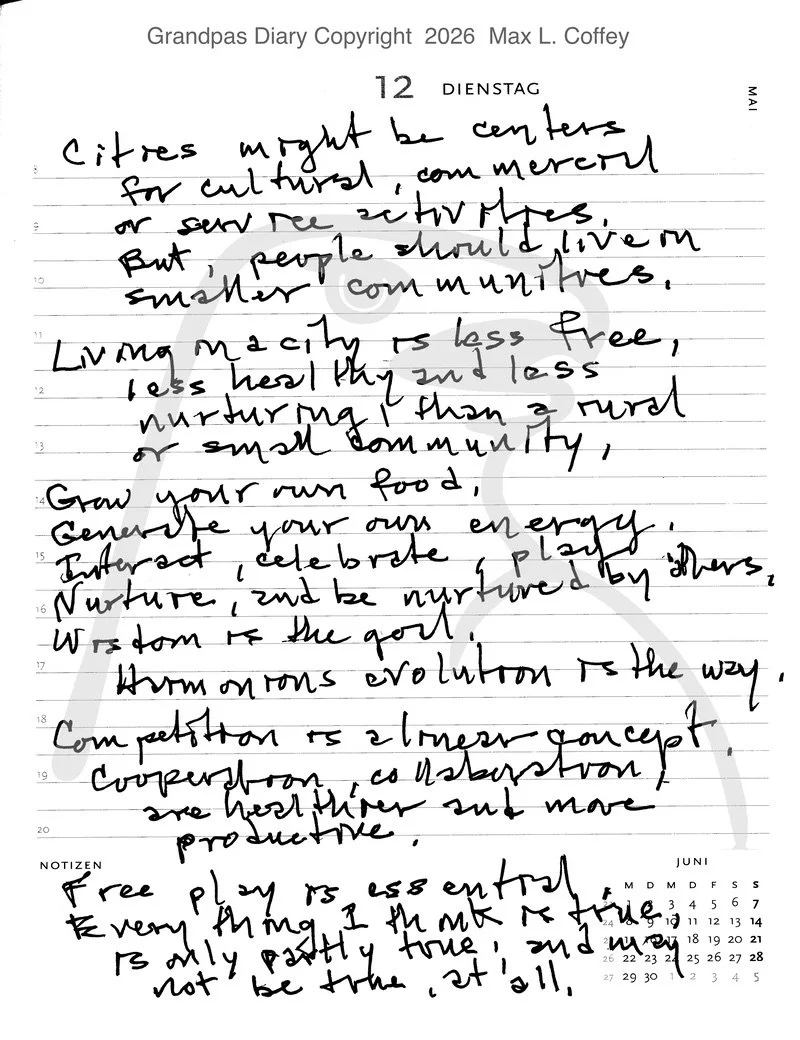 Grandpas Diary Copyright 2026 Max L. Coffey
12 DIENSTAG
MAI
Cities might be centers
8
for cultural, commercial
or service activities.
9
But, people should live in
10
smaller communities.
11
Living in a city is less free,
12
less healthy and less
nurturing, than a rural
13
or small community,
14
Grow your own food.
Generate your own energy.
15
Interact, celebrate, play
Nurture, and be nurtured by others,
16
Wisdom is the goal.
17
Harmonious evolution is the way.
18
Competition is a linear concept.
19
Cooperation, collaboration,
are healthier and more
20
productive.
NOTIZEN
JUNI
Free play is essential,
M D M D F S S
Every thing I think is true,
3 4 5 6 7
24 8 9 10 11 12 13 14
is only partly true, and may
17 18 19 20 21
not be true, at all.
26 22 23 24 25 26 27 28
27 29 30 1 2 3 4 5